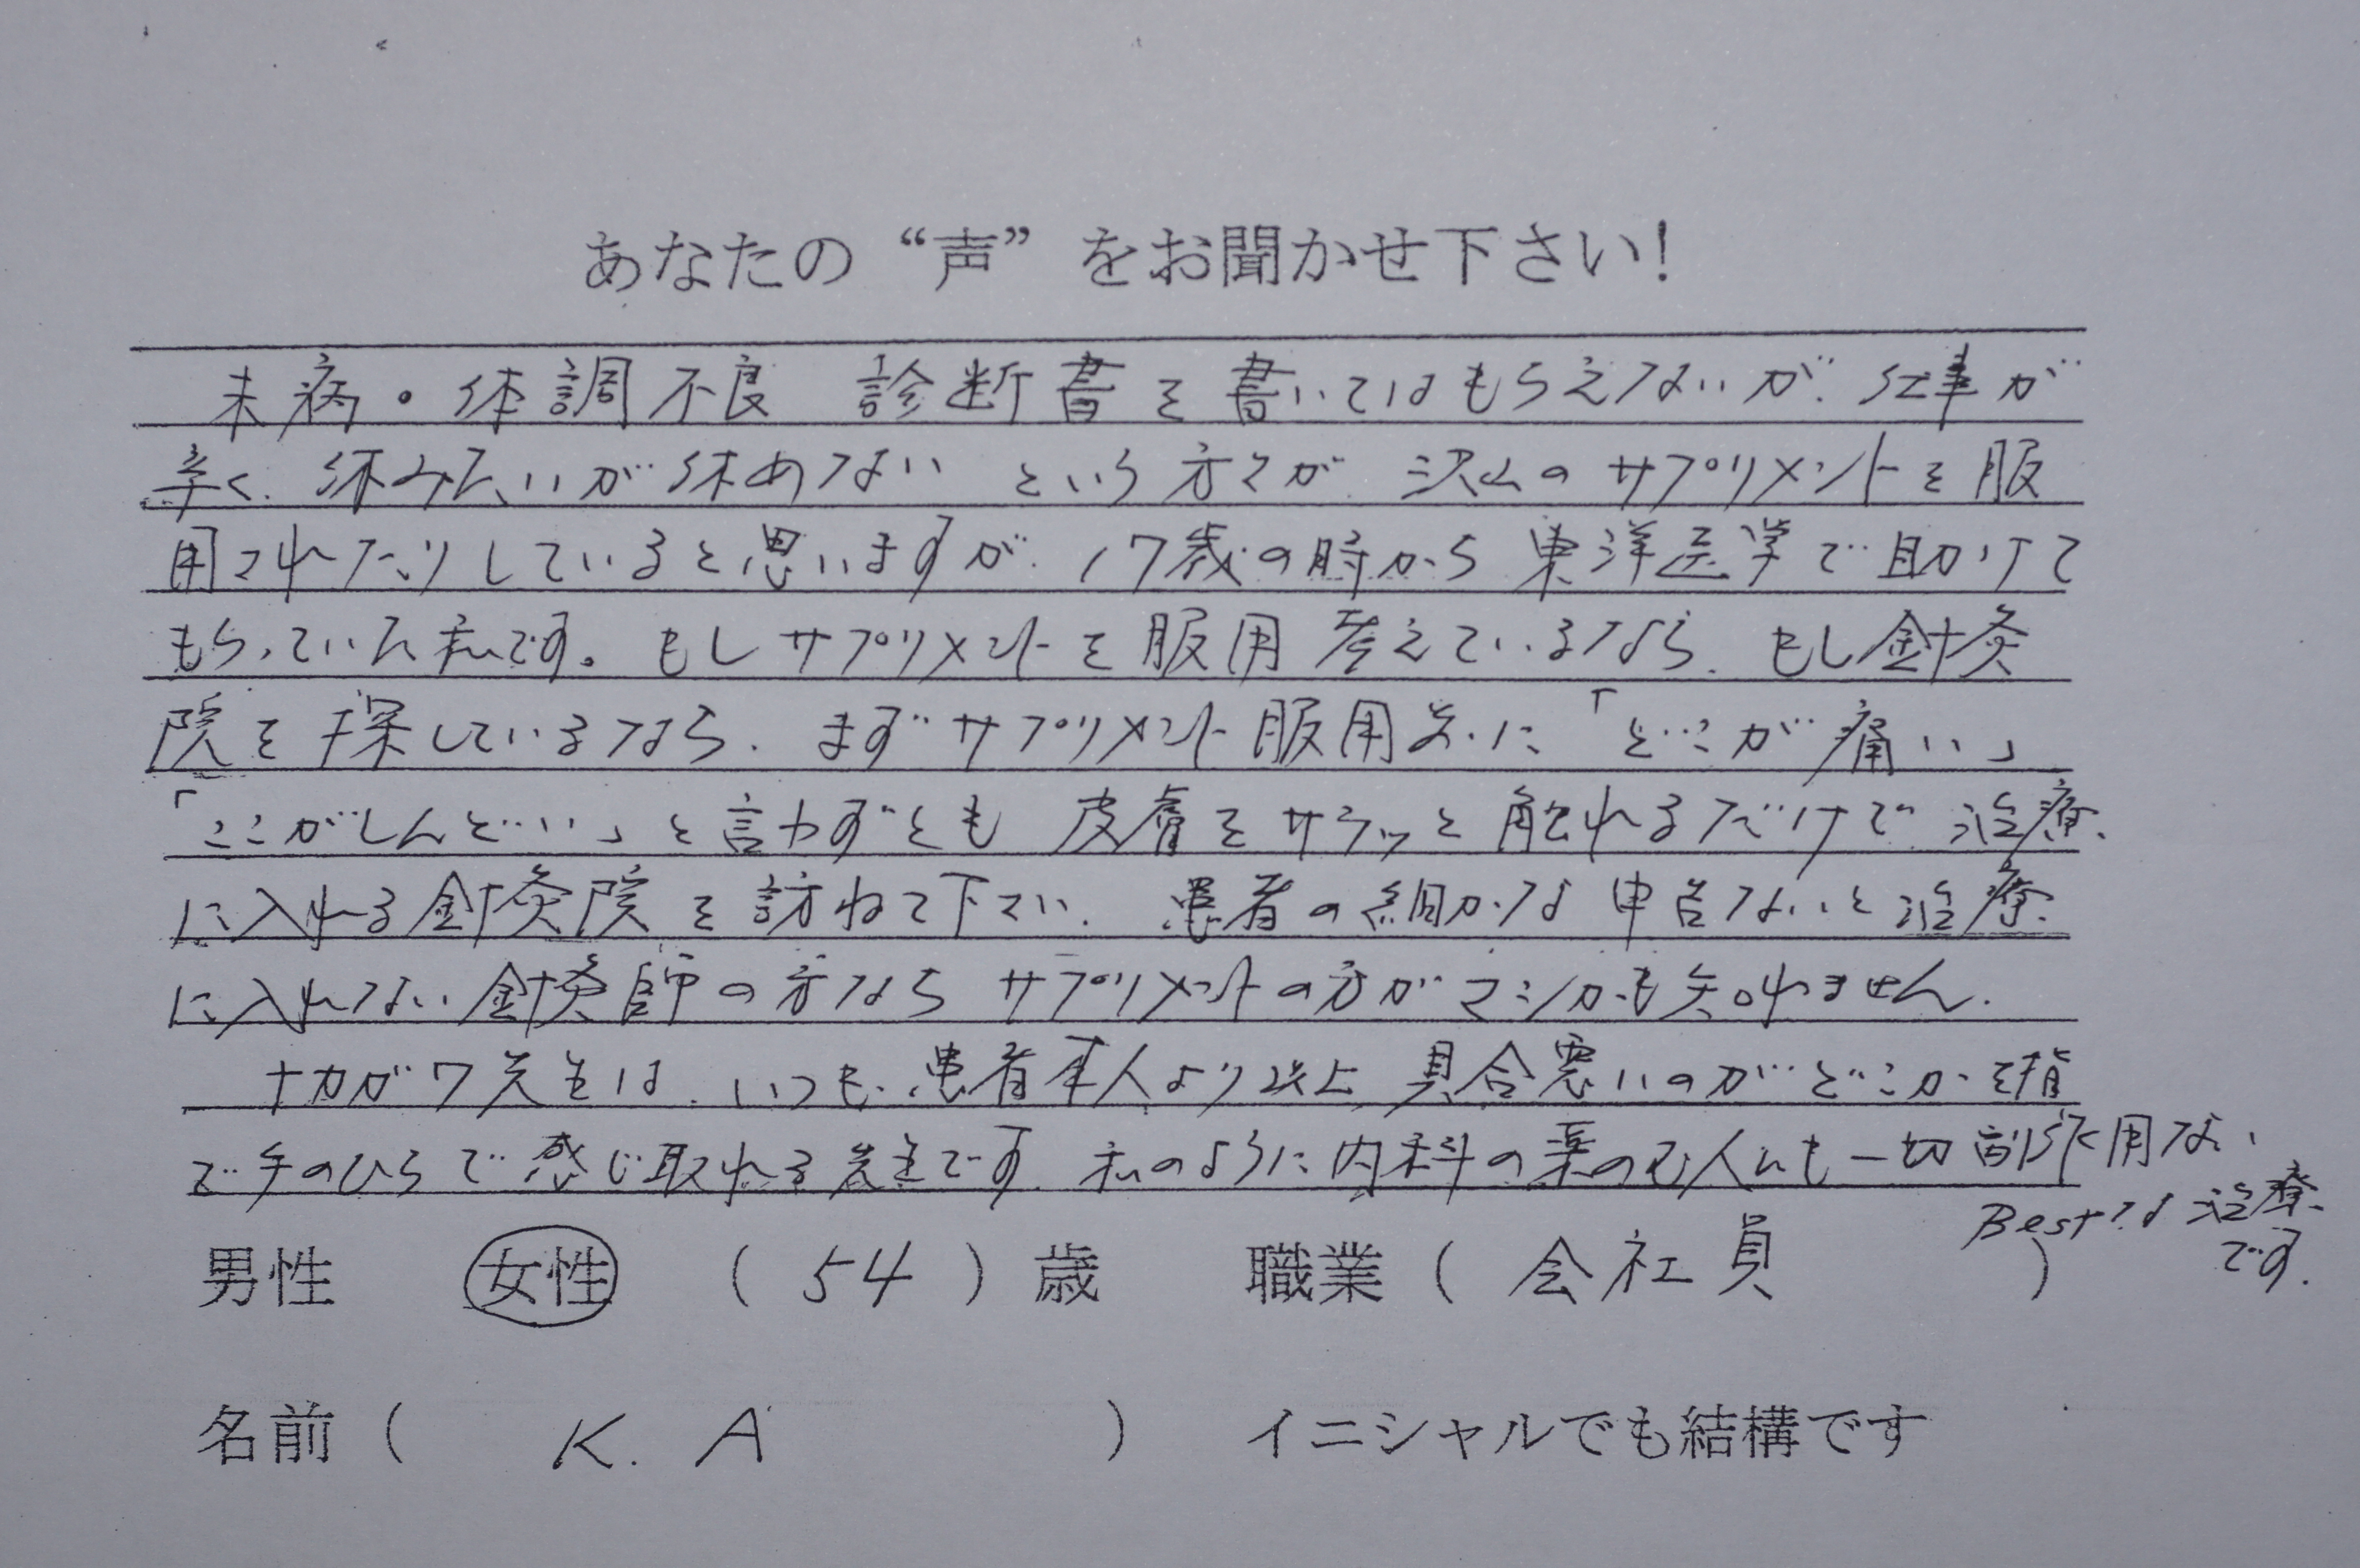 あなたの“声”をお聞かせ下さい!
未病・体調不良 診断書を書いてはもらえないが、仕事が
辛く、休みたいが休めない という方々が、沢山のサプリメントを服
用されたりしていると思いますが、17歳の時から東洋医学で助けて
もらっていた私です。もしサプリメントを服用考えているなら、もし針灸
院を探しているなら、まずサプリメント服用前に「どこが痛い」
「ここがしんどい」と言わずとも 皮膚をサラッと触れるだけで治療
に入れる針灸院を訪ねて下さい。患者の細かな申告ないと治療
に入れない針灸師の方なら サプリメントの方がマシかも知れません。
ナカガワ先生は、いつも、患者本人より以上、具合悪いのがどこかを指
で手のひらで感じ取れる先生です。私のように内科の薬のむ人にも一切副作用ない
Bestな治療
です。
男性 女性 (54)歳 職業(会社員)
名前(K.A) イニシャルでも結構です